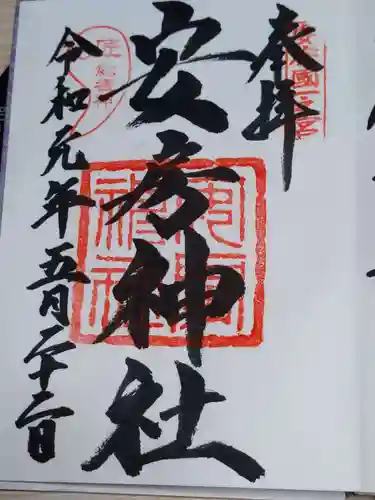 奉拝
安房國一宮
安房神社
安房神社
令和元年五月二十二日